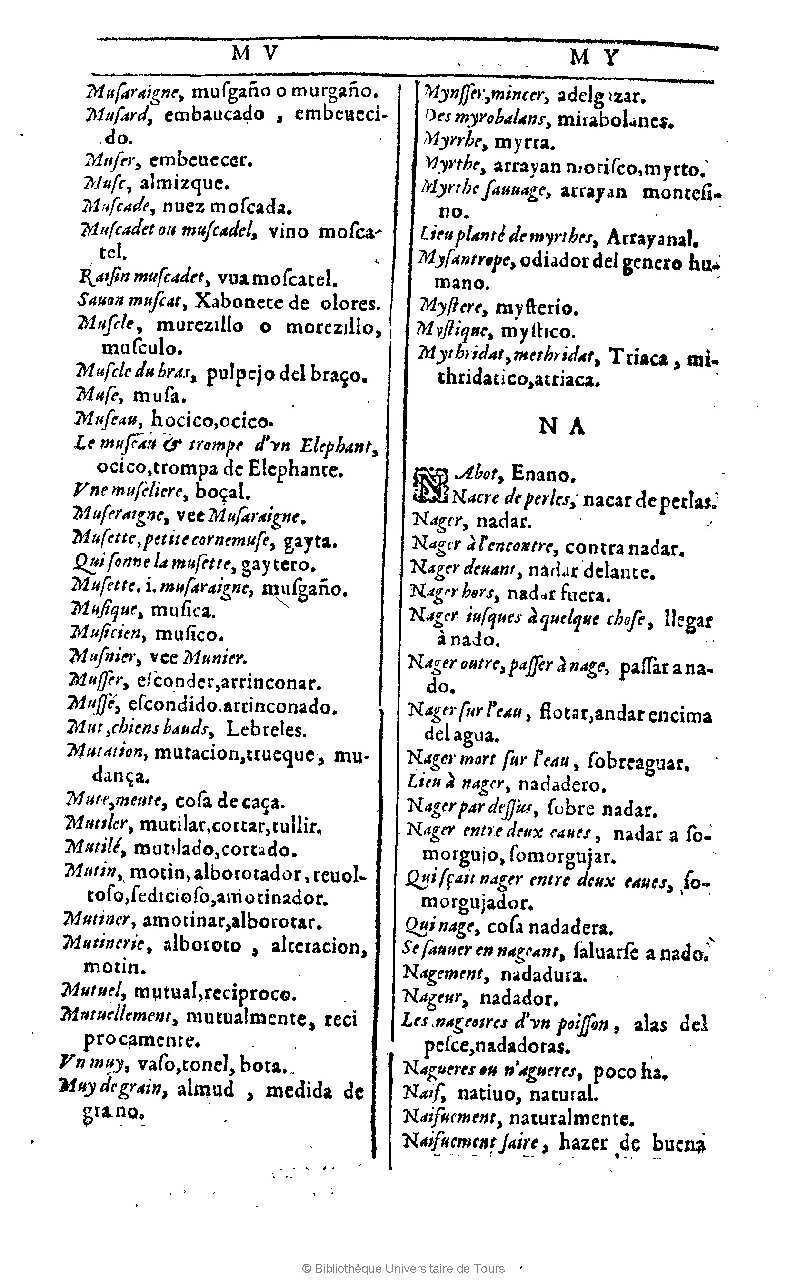 M V
Muſaraigne, muſgaño o murgaño.
Muſard, embaucado , embeueci-
do.
Muſer, embeuecer.
Muſc, almizque.
Muſcade, nuez moſcada.
Muſcadet ou muſcadel, vino moſca-
tel.
Raiſin muſcadet, vua moſcatel.
Sauon muſcat, Xabonete de olores.
Muſcle, murezillo o morezillo,
muſculo.
Muſcle du bras, pulpejo del braço.
Muſe, muſa.
Muſeau, hocico,ocico.
Le muſeau & trompe d'vn Elephant,
ocico,trompa de Elephante.
Vne muſeliere, boçal.
Muſeraigne, vee Muſaraigne.
Muſette, petite cornemuſe, gayta.
Qui ſonne la muſette, gaytero.
Muſette. i. muſaraigne, muſgaño.
Muſique, muſica.
Muſicien, muſico.
Muſnier, vee Munier.
Muſſer, eſconder,arrinconar.
Muſſé, eſcondido.arrinconado.
Mut,chiens bauds, Lebreles.
Mutation, mutacion,trueque, mu-
dança.
Mute,mente, coſa de caça.
Mutiler, mutilar,cortar,tullir.
Mutilé, mutilado,cortado.
Mutin, motin, alborotador, reuol-
toſo,ſedicioſo,amotinador.
Mutiner, amotinar,alborotar.
Mutinerie, alboroto , alteracion,
motin.
Mutuel, mutual,reciproco.
Mutuellement, mutualmente, reci
procamente.
Vn muy, vaſo,tonel, bota.
Muy de grain, almud , medida de
grano.
M Y
Mynſſer,mincer, adelgizar.
Des myrobalans, mirabolanes.
Myrrhe, myrra.
Myrthe, arrayan moriſco,myrto.
Myrthe ſauuage, arrayan monteſi-
no.
Lieu planté de myrthes, Arrayanal.
Myſantrope, odiador del genero hu-
mano.
Myſtere, myſterio.
Myſtique, myſtico.
Mythridat, methridat, Triaca , mi-
thridatico,atriaca.
N A
NAbot, Enano.
Nacre de perles, nacar de perlas.
Nager, nadar.
Nager à l'encontre, contra nadar.
Nager deuant, nadar delante.
Nager hors, nadar fuera.
Nager iuſques à quelque choſe, llegar
à nado.
Nager outre, paſſer à nage, paſſar a na-
do.
Nager ſur l'eau, flotar,andar encima
del agua.
Nager mort ſur l'eau, ſobreaguar.
Lieu à nager, nadadero.
Nager par deſſus, ſobre nadar.
Nager entre deux eaues, nadar a ſo-
morgujo, ſomorgujar.
Qui ſçait nager entre deux eaues, ſo-
morgujador.
Qui nage, coſa nadadera.
Se ſauuer en nageant, ſaluarſe a nado.
Nagement, nadadura.
Nageur, nadador.
Les nageoires d'vn poiſſon, alas del
peſce,nadadoras.
Nagueres ou n'agueres, poco ha.
Naif, natiuo, natural.
Naifuement, naturalmente.
Naifuement faire, hazer de buena
© Bibliothèque Universitaire de Tours